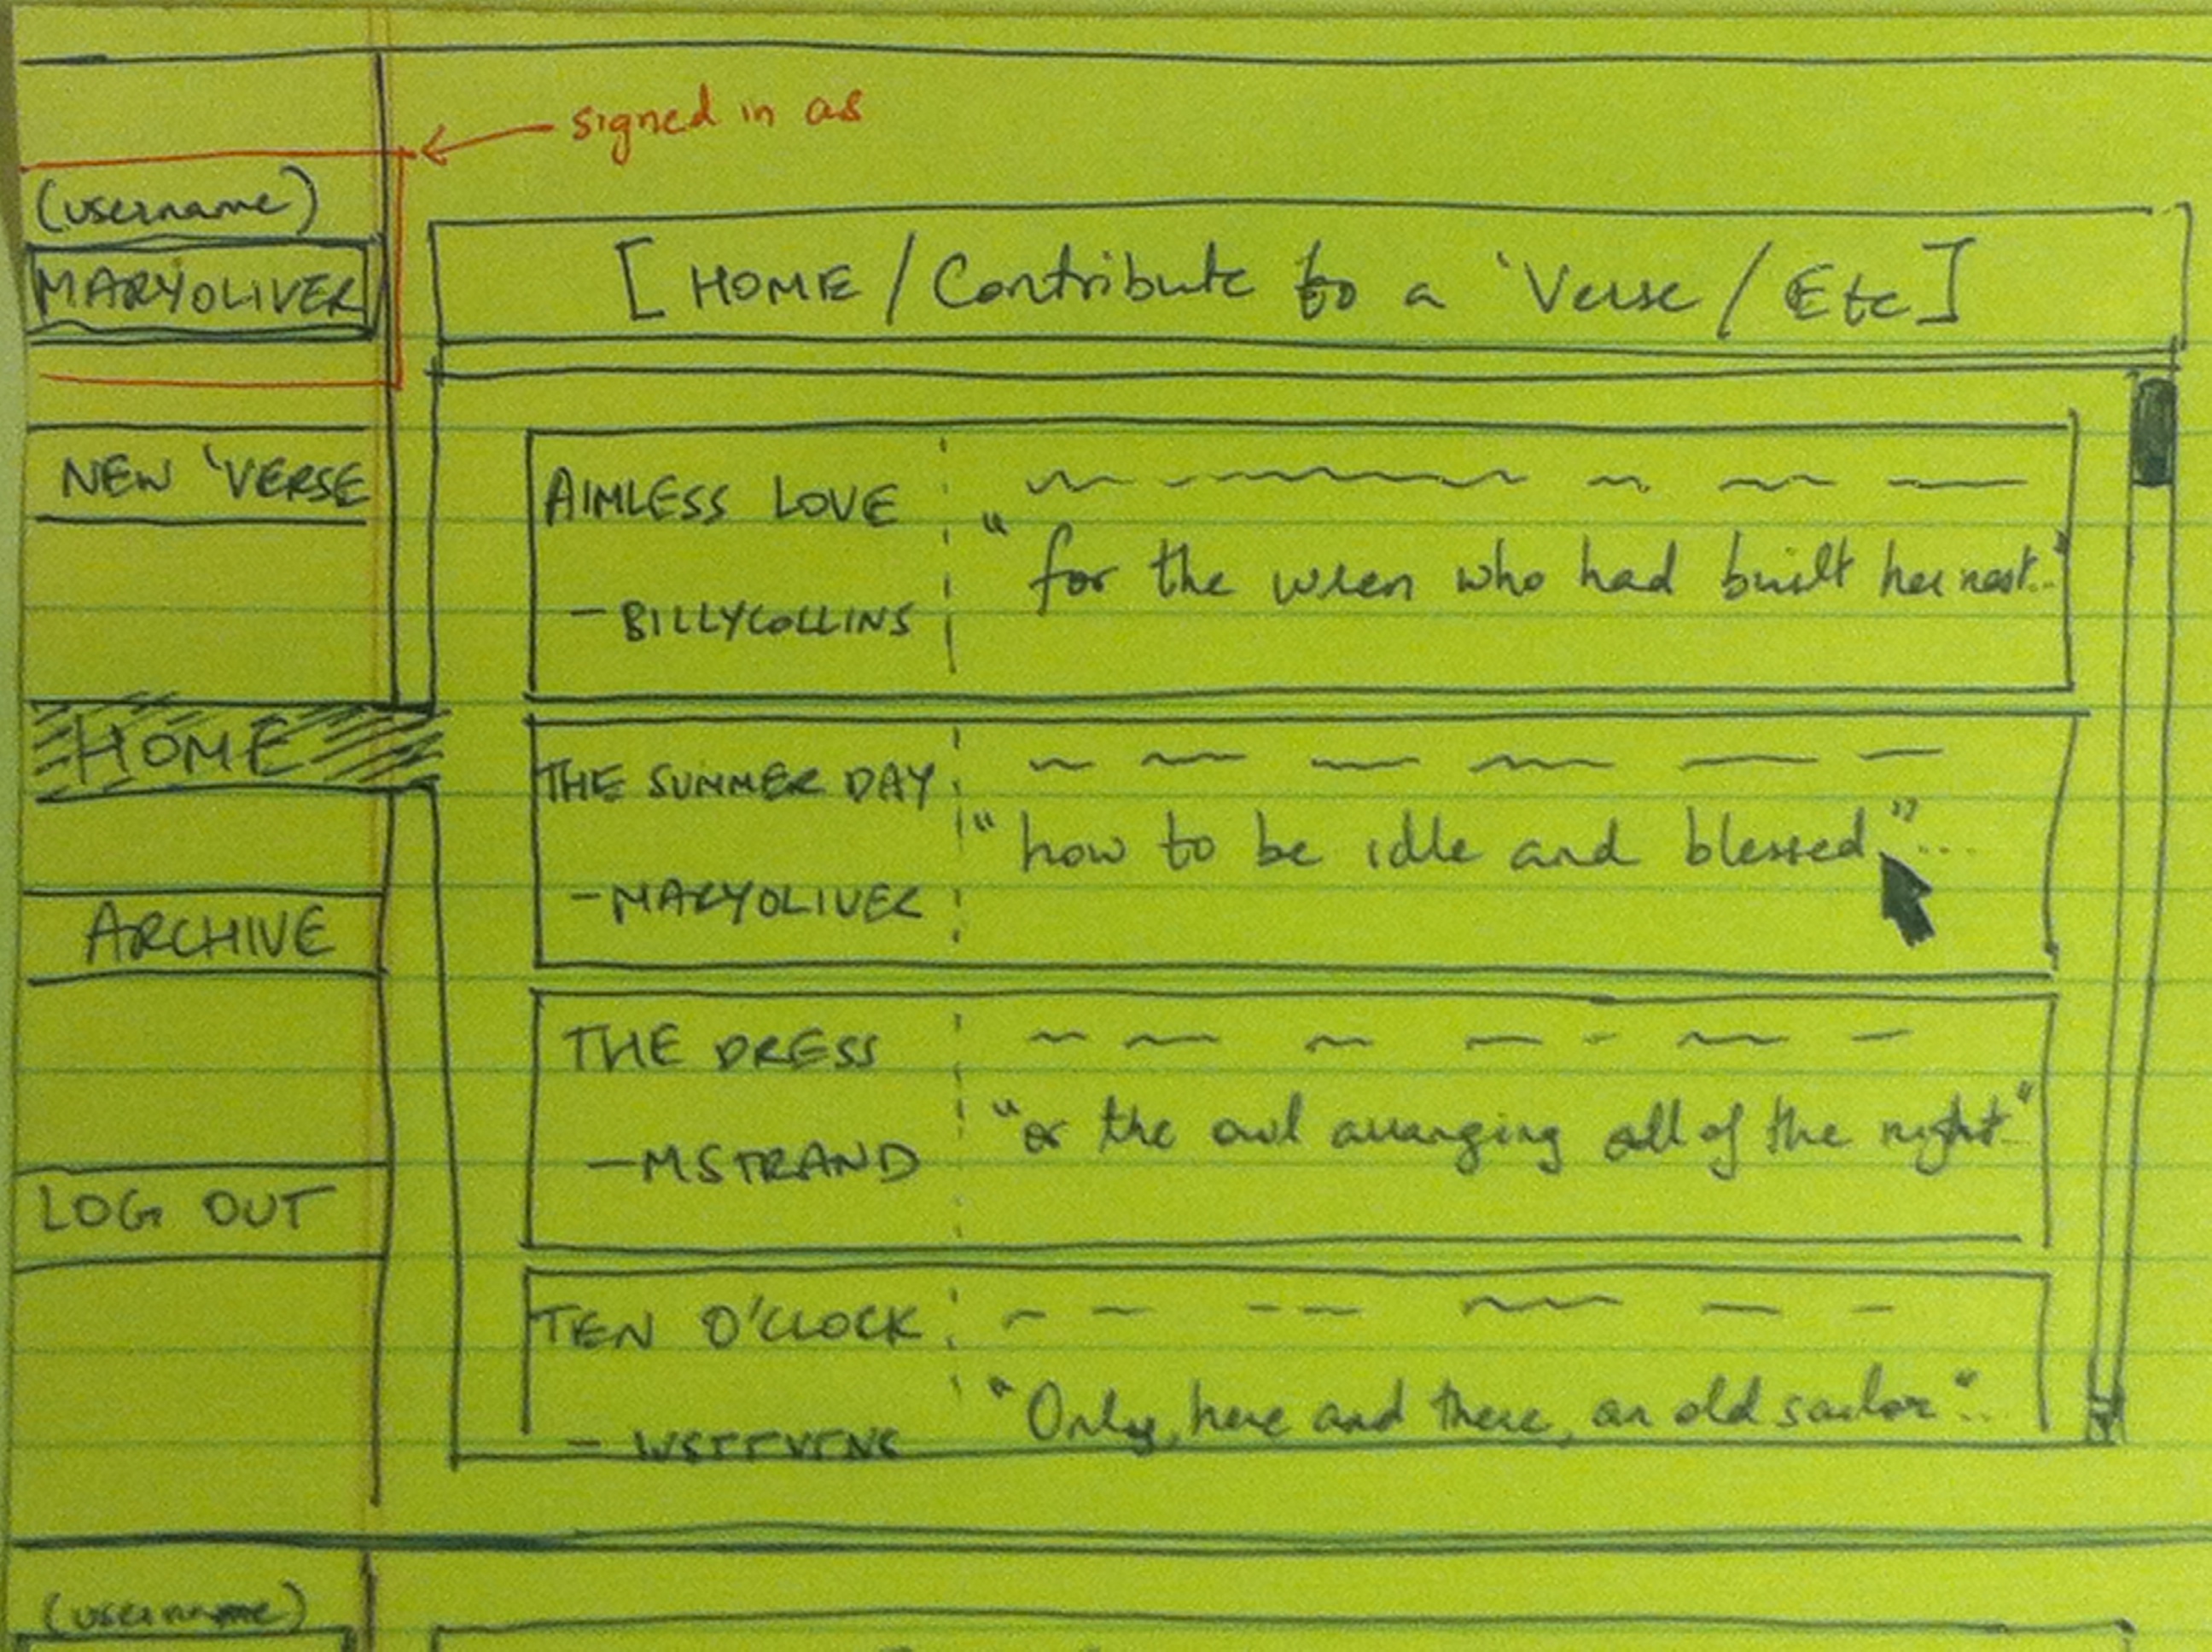 signed in as
(username)
MARYOLIVER
[HOME / Contribute to a 'Verse / Etc]
NEW 'VERSE
HOME
ARCHIVE
LOG OUT
AIMLESS LOVE
- BILLYCOLLINS
"for the wren who had built her nest..."
THE SUMMER DAY
- MARYOLIVER
"how to be idle and blessed"...
THE DRESS
- MSTRAND
"or the owl arranging all of the night..."
TEN O'CLOCK
- WSTEVENS
"Only, here and there, an old sailor"...
(username)